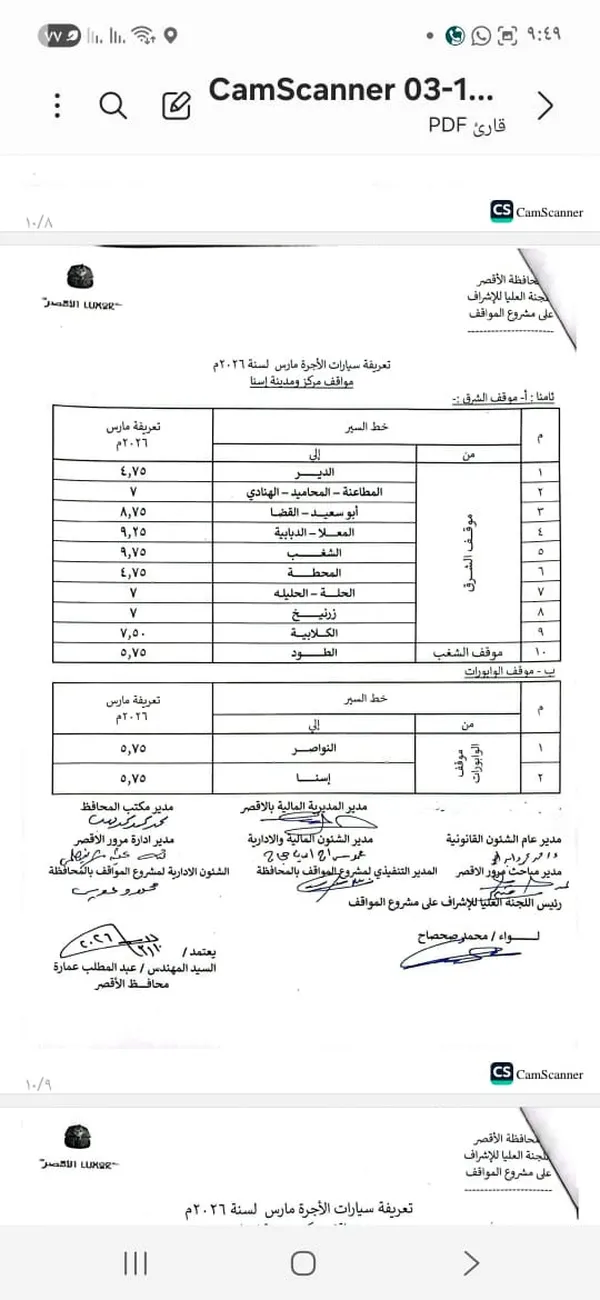 ٧٧
٩:٤٩
CamScanner 03-1...
قارئ PDF
١٠/٨
CS CamScanner
الأقصر LUXOR
محافظة الأقصر
اللجنة العليا للإشراف
على مشروع المواقف
تعريفة سيارات الأجرة مارس لسنة ٢٠٢٦م
مواقف مركز ومدينة إسنا
ثامنا : أ- موقف الشرق :-
م خط السير تعريفة مارس ٢٠٢٦م
من إلي
موقف الشرق
١ الديـــر ٤,٧٥
٢ المطاعنة – المحاميد – الهنادي ٧
٣ أبو سعيـد – القضا ٨,٧٥
٤ المعـلا – الدبابية ٩,٢٥
٥ الشغـــب ٩,٧٥
٦ المحطـــة ٤,٧٥
٧ الحلـــة – الحليله ٧
٨ زرنيـــخ ٧
٩ الكلابيـة ٧,٥٠
١٠ موقف الشغب الطـــود ٥,٧٥
ب – موقف الوابورات
م خط السير تعريفة مارس ٢٠٢٦م
من إلي
موقف الوابورات
١ النواصـر ٥,٧٥
٢ إسنـــا ٥,٧٥
مدير المديرية المالية بالاقصر مدير مكتب المحافظ
مدير عام الشئون القانونية مدير الشئون المالية والادارية مدير ادارة مرور الأقصر
مدير مباحث مرور الاقصر المدير التنفيذي لمشروع المواقف بالمحافظة الشئون الادارية لمشروع المواقف بالمحافظة
رئيس اللجنة العليا للإشراف على مشروع المواقف
لـــواء / محمد صحصاح
يعتمد /
٢٠٢٦
السيد المهندس / عبد المطلب عمارة
محافـــظ الأقصر
١٠/٩
CS CamScanner
الأقصر LUXOR
محافظة الأقصر
اللجنة العليا للإشراف
على مشروع المواقف
تعريفة سيارات الأجرة مارس لسنة ٢٠٢٦م